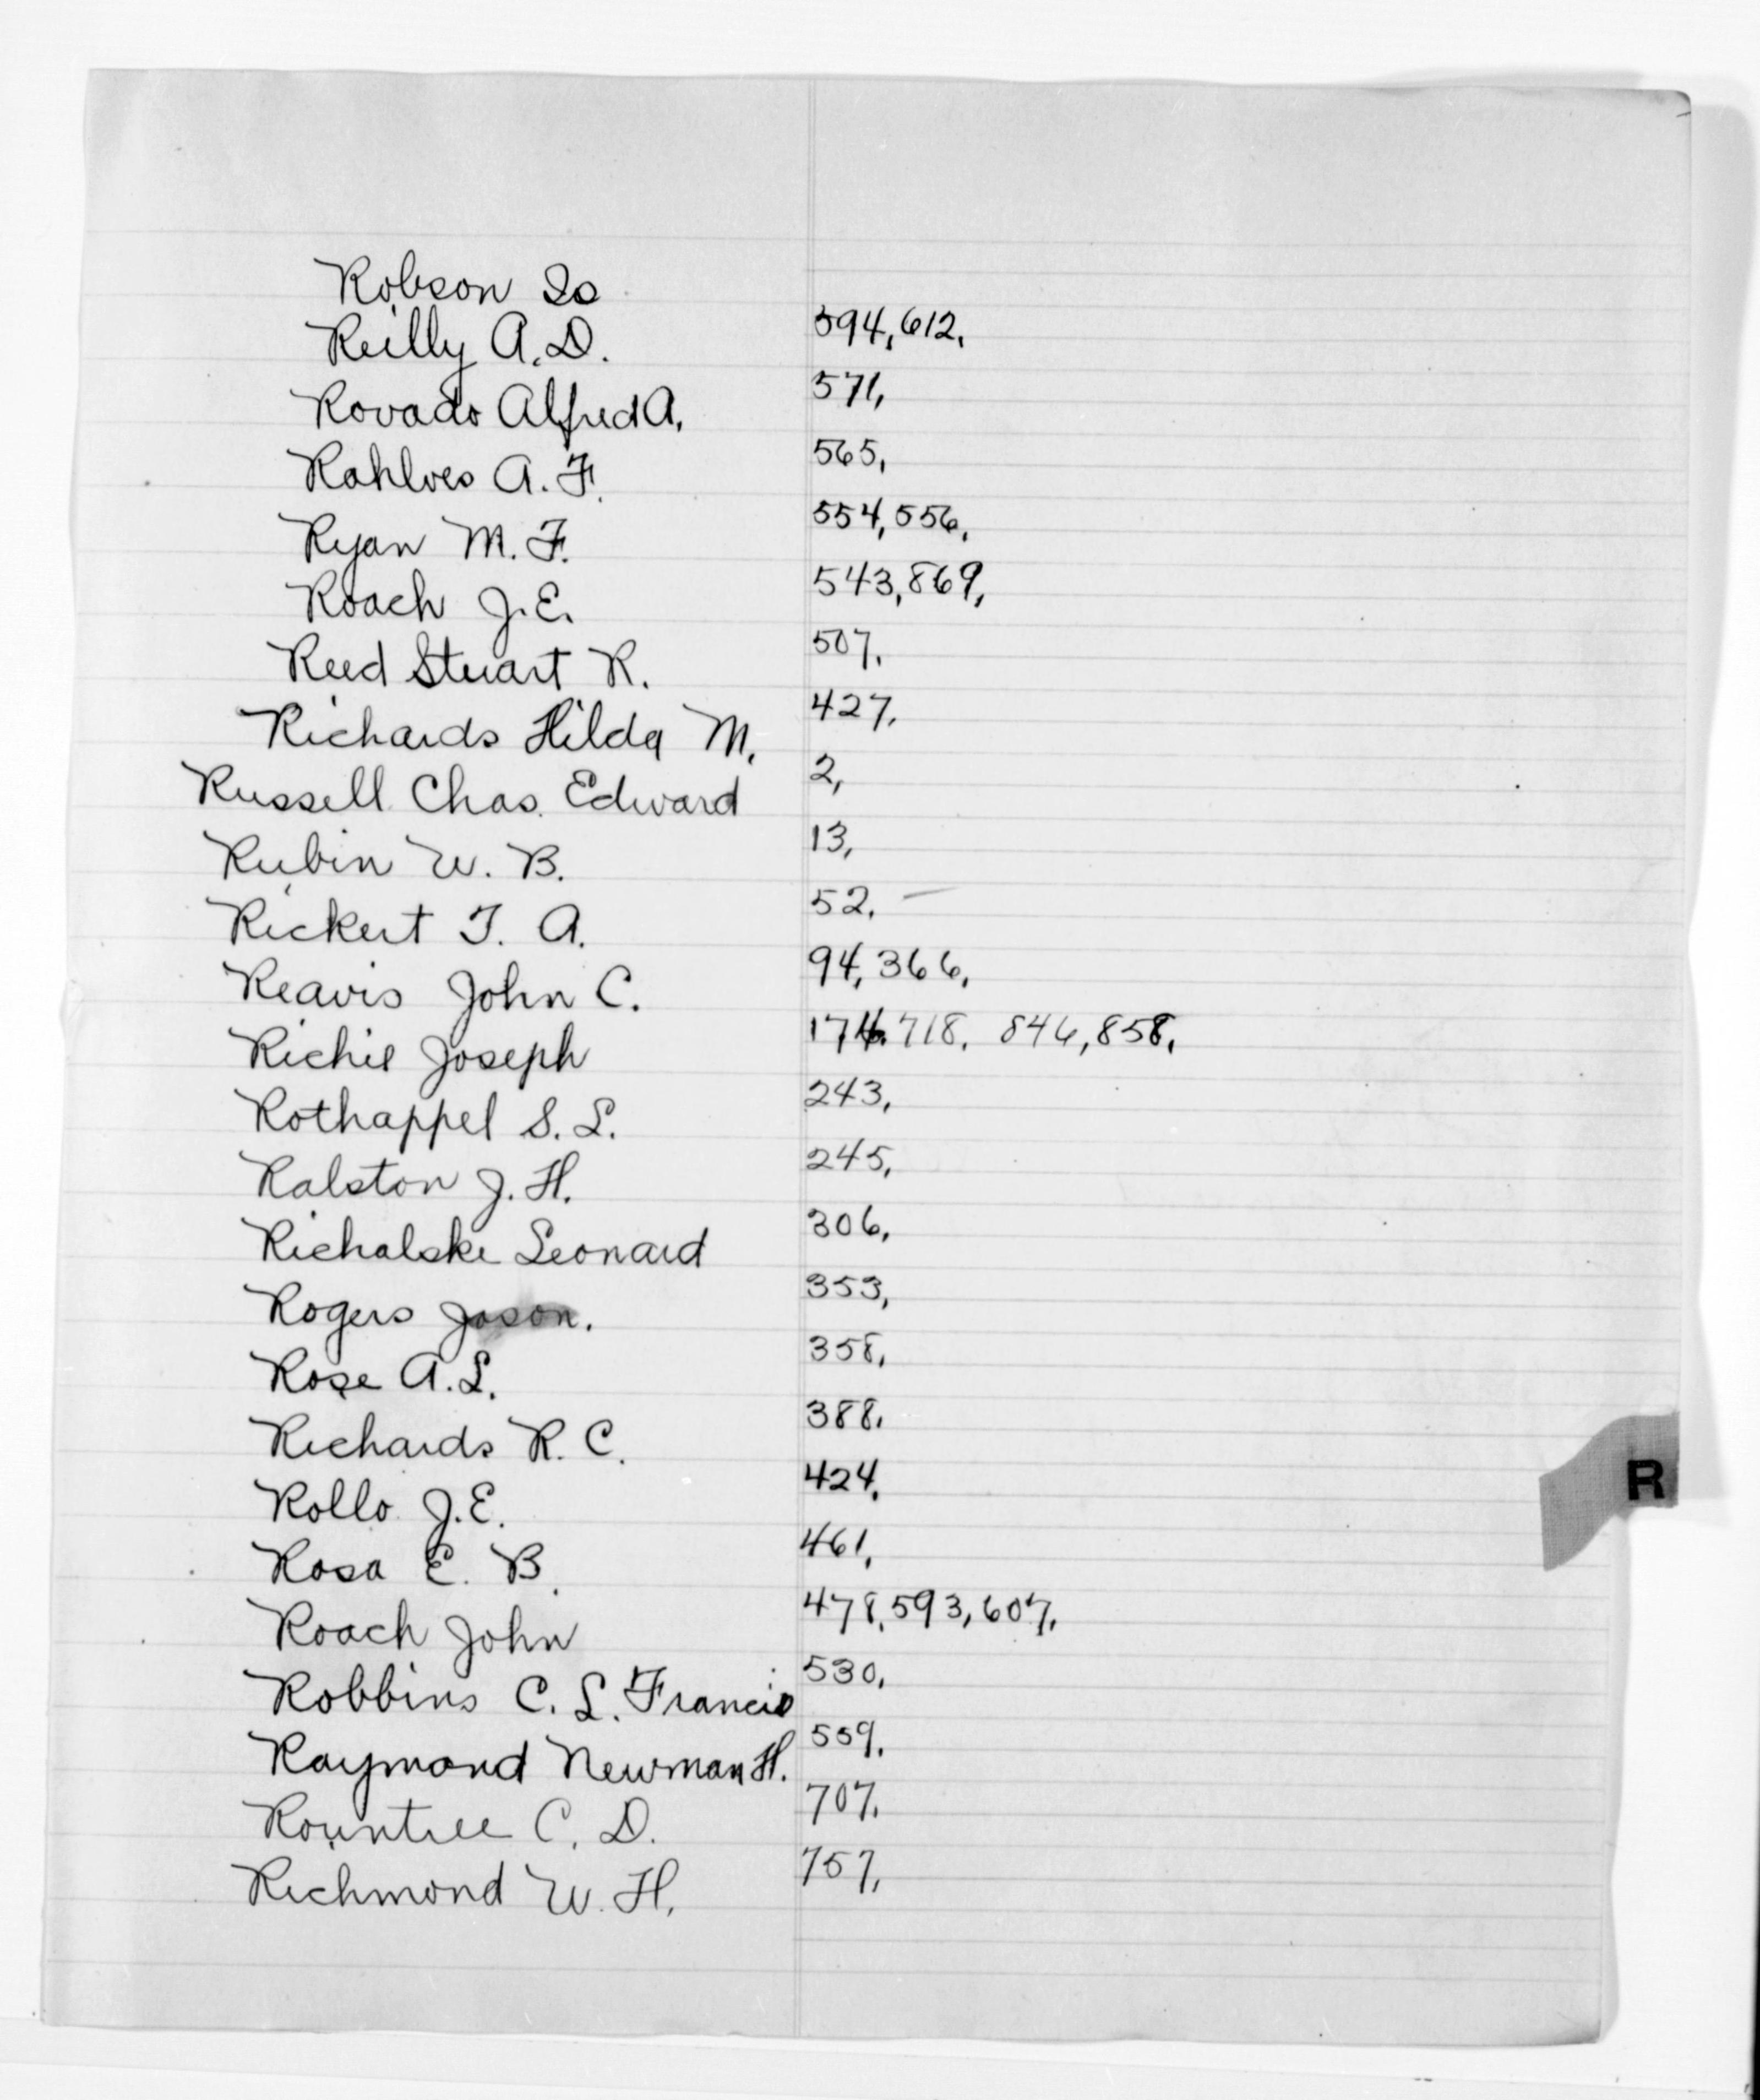 Robson Is
Reilly A.D. 594,612,
Rovado Alfred A. 571,
Rahlves A. F. 565,
Ryan M. F. 554,556,
Roach J.E. 543,869,
Reed Stuart R. 507,
Richards Hilda M. 427,
Russell Chas. Edward 2,
Rubin W. B. 13,
Rickert T. A. 52, —
Reavis John C. 94,366,
Richie Joseph 718, 846,858,
Rothappel S. L. 243,
Ralston J. H. 245,
Richalske Leonard 306,
Rogers Jason. 353,
Rose A.L. 358,
Richards R. C. 388,
Rollo J.E. 424,
Rosa E. B. 461,
Roach John 478,593,607,
Robbins C. L. Francis 530,
Raymond Newman H. 559,
Rountree C. D. 707,
Richmond W. H. 757,
R